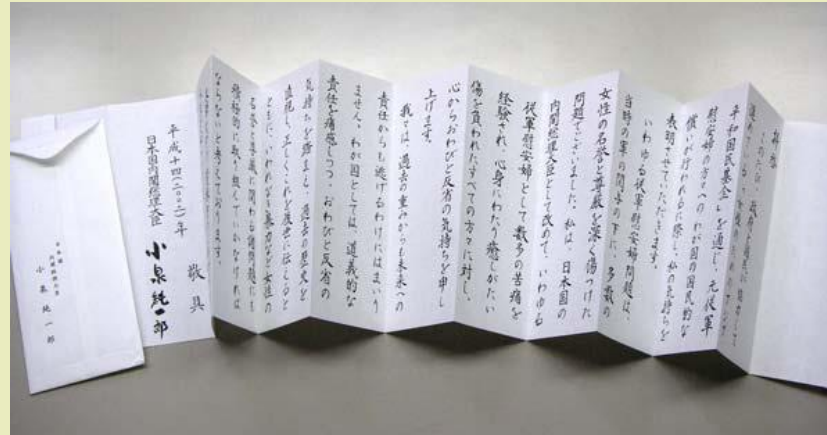 拝啓
このたび、政府と国民が協力して
進めている「女性のためのアジア
平和国民基金」を通じ、元従軍
慰安婦の方々へのわが国の国民的な
償いが行われるに際し、私の気持ちを
表明させていただきます。
いわゆる従軍慰安婦問題は、
当時の軍の関与の下に、多数の
女性の名誉と尊厳を深く傷つけた
問題でございました。私は、日本国の
内閣総理大臣として改めて、いわゆる
従軍慰安婦として数多の苦痛を
経験され、心身にわたり癒しがたい
傷を負われたすべての方々に対し、
心からおわびと反省の気持ちを申し
上げます。
我々は、過去の重みからも未来への
責任からも逃げるわけにはまいり
ません。わが国としては、道義的な
責任を痛感しつつ、おわびと反省の
気持ちを踏まえ、過去の歴史を
直視し、正しくこれを後世に伝えると
ともに、いわれなき暴力など女性の
名誉と尊厳に関わる諸問題にも
積極的に取り組んでいかなければ
ならないと考えております。
敬具
平成十四(二〇〇二)年
日本国内閣総理大臣 小泉純一郎
日本国
内閣総理大臣
小泉純一郎